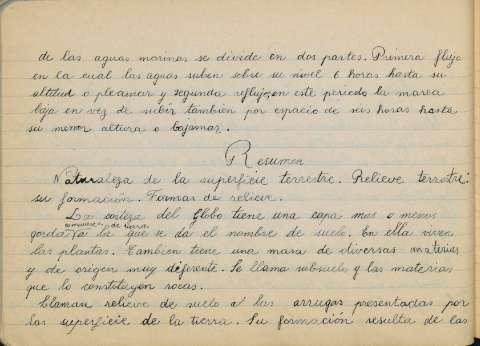 de las aguas marinas se divide en dos partes. Primera flujo
en la cual las aguas suben sobre su nivel 6 horas hasta su
altitud o pleamar y segunda reflujo, en este periodo la marea
baja en vez de subir tambien por espacio de seis horas hasta
su menor altura o bajamar.
Resumen
Naturaleza de la superficie terrestre. Relieve terrestre:
su formación. Formas de relieve.
La corteza del Globo tiene una capa mas o menos
de tierra
gorda a la que se da el nombre de suelo. En ella viven
las plantas. Tambien tiene una masa de diversas materias
y de origen muy diferente. Se llama subsuelo y las materias
que lo constituyen rocas.
Llaman relieve de suelo a las arrugas presentadas por
las superficie de la tierra. Su formación resulta de las